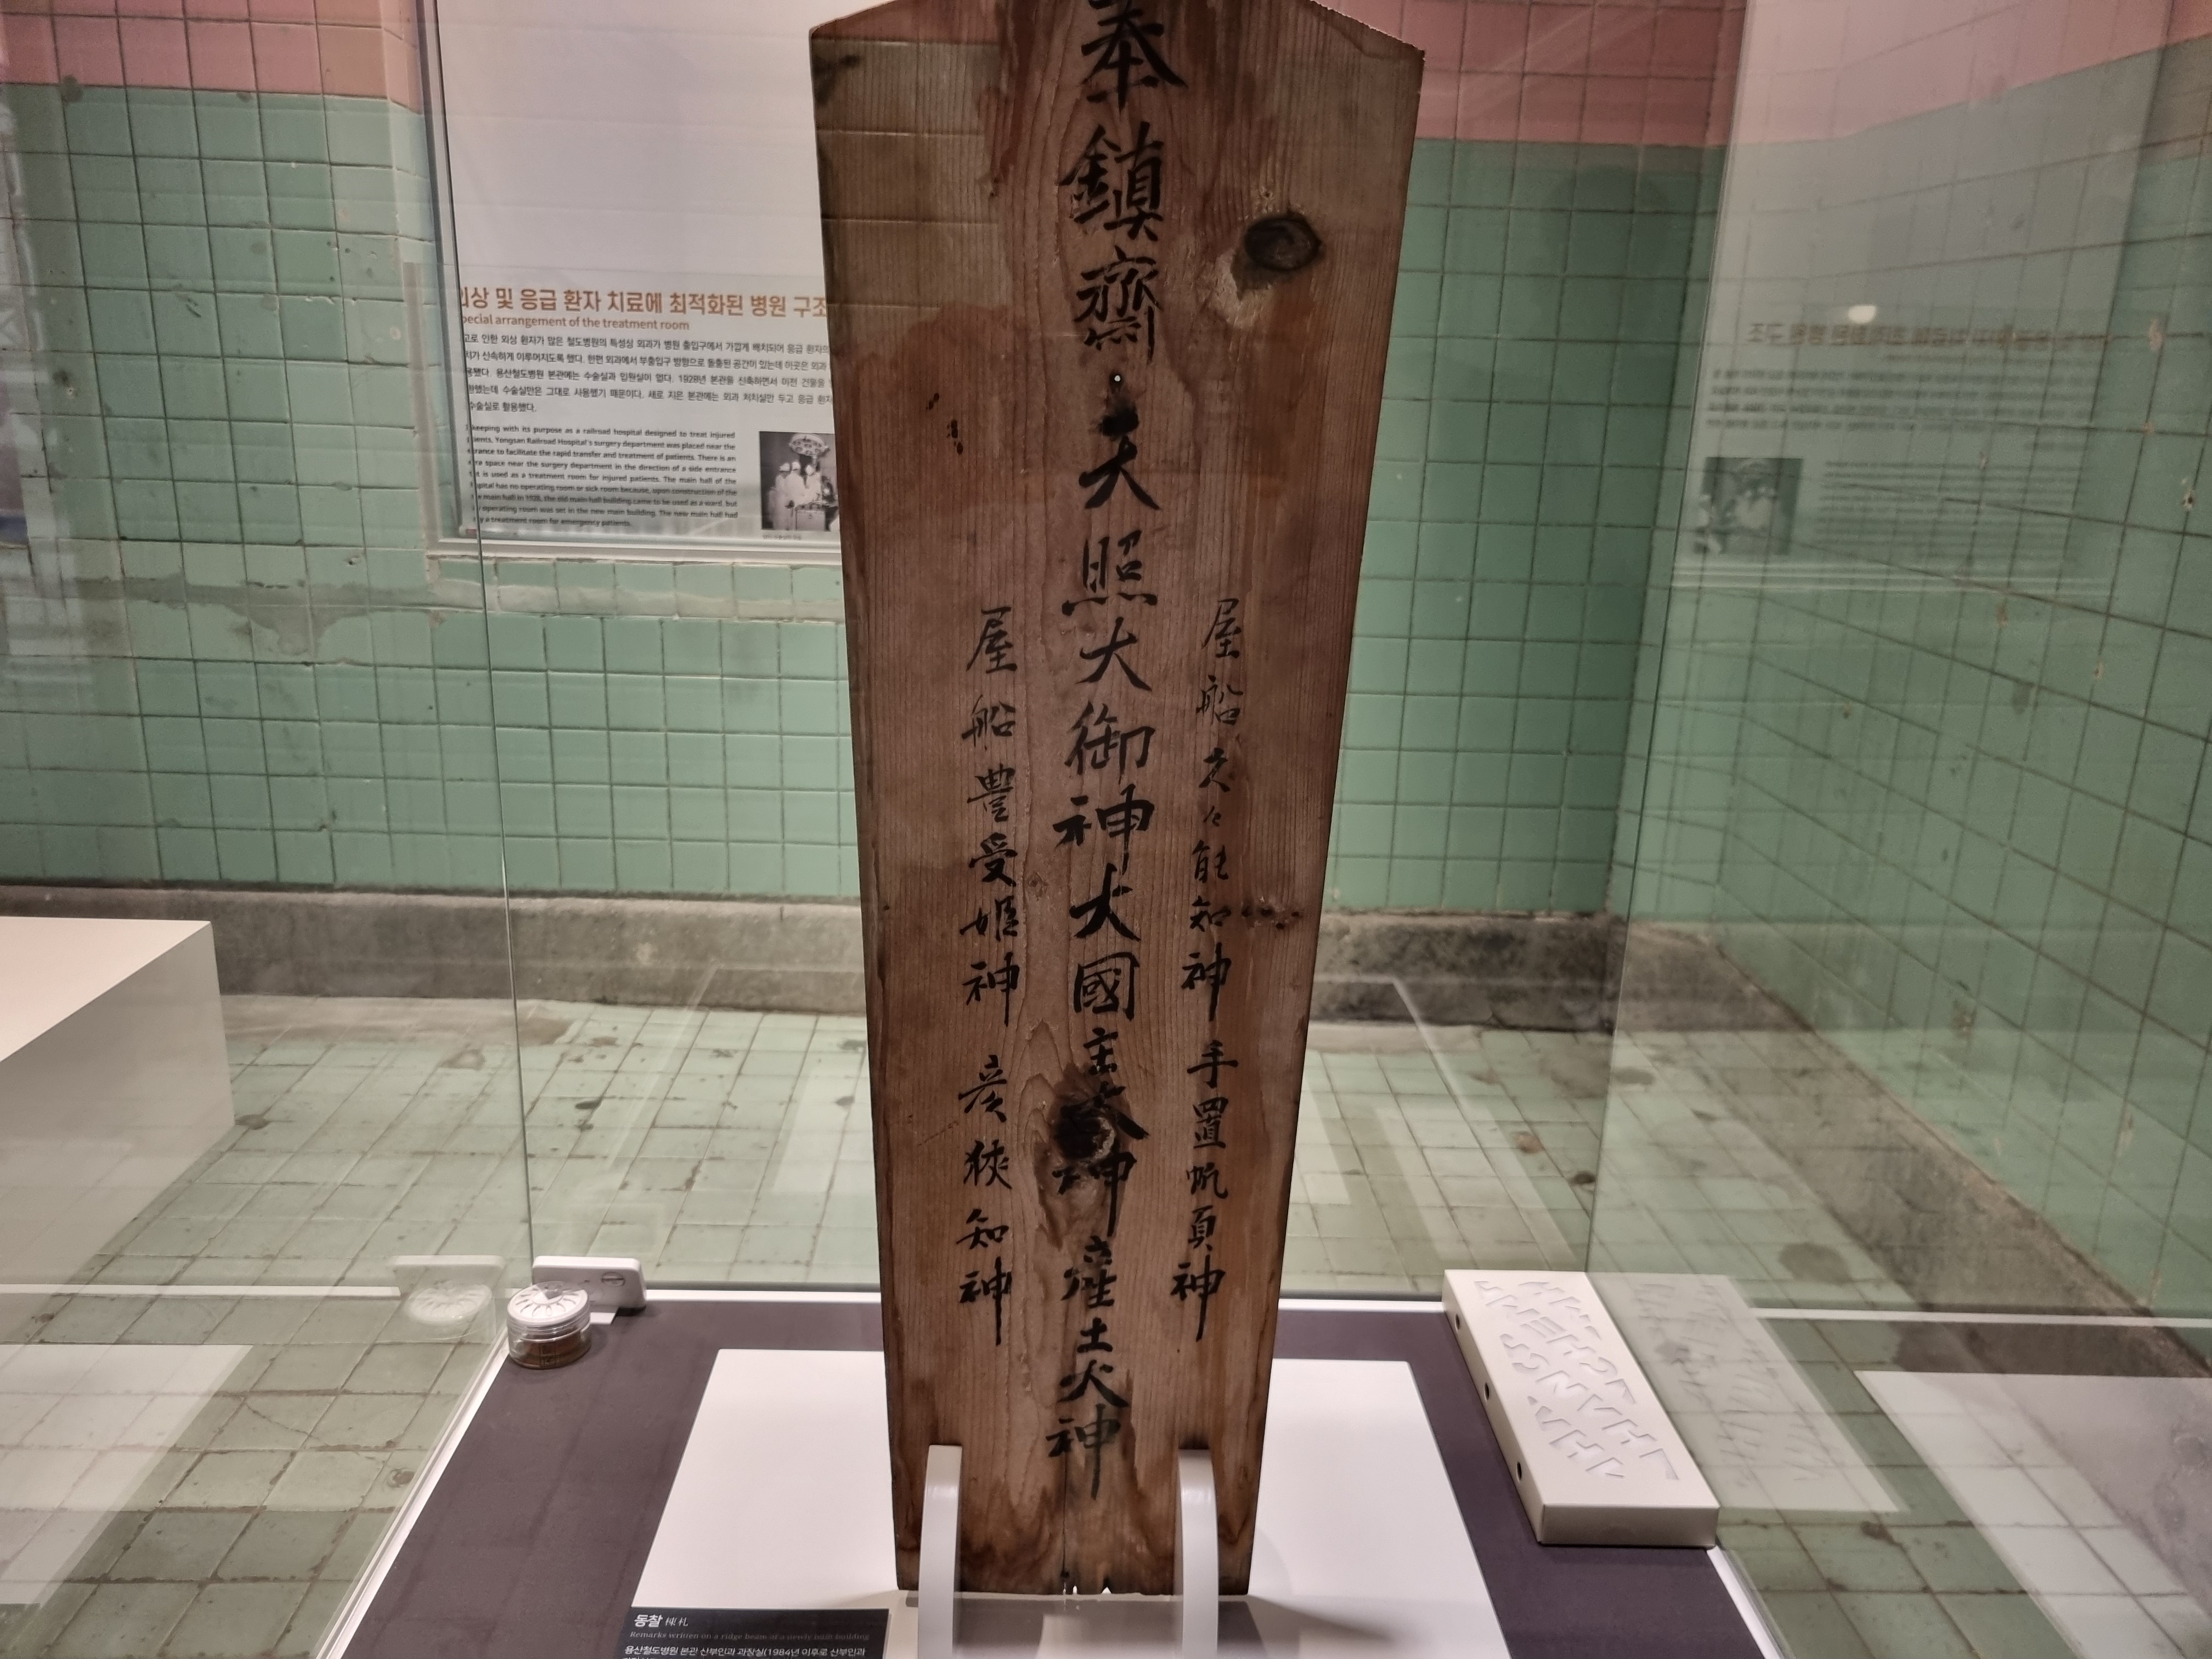 외상 및 응급 환자 치료에 최적화된 병원 구조
pecial arrangement of the treatment room
고로 인한 외상 환자가 많은 철도병원의 특성상 외과가 병원 출입구에서 가깝게 배치되어 응급 환자의
치가 신속하게 이루어지도록 했다. 한편 외과에서 부출입구 방향으로 돌출된 공간이 있는데 이곳은 외과
용했다. 용산철도병원 본관에는 수술실과 입원실이 없다. 1928년 본관을 신축하면서 이전 건물을
했는데 수술실만은 그대로 사용했기 때문이다. 새로 지은 본관에는 외과 처치실만 두고 응급 환자
수술실로 활용했다.
keeping with its purpose as a railroad hospital designed to treat injured
ients, Yongsan Railroad Hospital's surgery department was placed near the
trance to facilitate the rapid transfer and treatment of patients. There is an
ra space near the surgery department in the direction of a side entrance
t is used as a treatment room for injured patients. The main hall of the
spital has no operating room or sick room because, upon construction of the
main hall in 1928, the old main hall building came to be used as a ward, but
operating room was set in the new main building. The new main hall had
y a treatment room for emergency patients.
屋船久々能知神 手置帆負神
奉鎮齋 天照大御神大國主大神産土大神
屋船豊受姫神 彦狹知神
동찰 棟札
Remarks written on a ridge beam of a newly built building
용산철도병원 본관 산부인과 과장실(1984년 이후로 산부인과